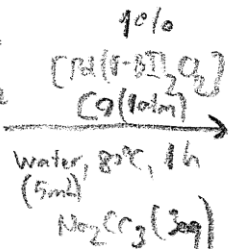 10%
[Pd(1-BI)2Cl2]
CO (1atm)
Water, 80°C, 1h
(5mL)
Na2CO3 (3eq)